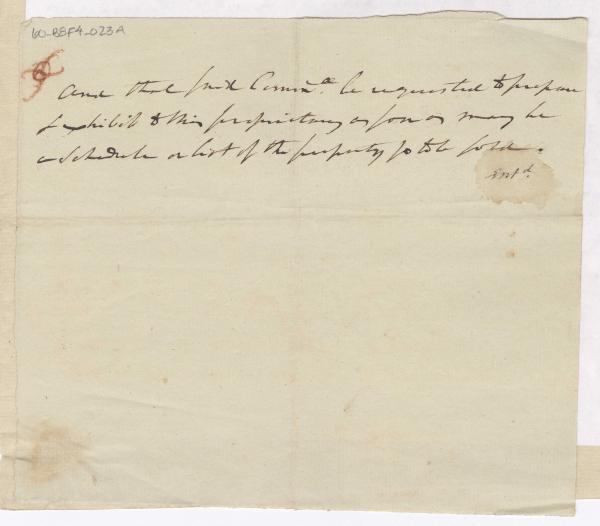 60-B8F4-023A
and that said Comm.ee be requested to prepare
& exhibit to this proprietary as soon as may be
a Schedule or list of the property so to be sold.
Ent.d